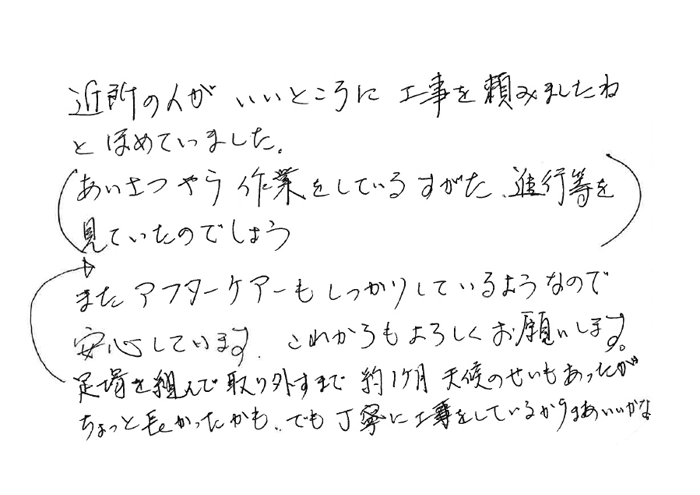 近所の人が いいところに 工事を頼みましたね
と ほめていました。
(あいさつやら 作業をしているすがた、進行等を
見ていたのでしょう)
また アフターケアーもしっかりしているようなので
安心しています。これからもよろしくお願いします。
足場を組んで取り外すまで 約1ケ月 天候のせいもあったが
ちょっと長かったかも、でも丁寧に工事をしているからまあいいかな